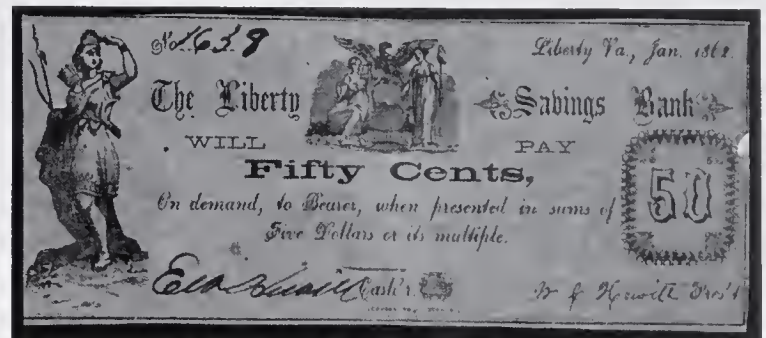 No. 1658 Liberty Va., Jan. 1862.
The Liberty Savings Bank
WILL PAY
Fifty Cents,
50
On demand, to Bearer, when presented in sums of
Five Dollars or its multiple.
Cash'r. Hewitt Pres't